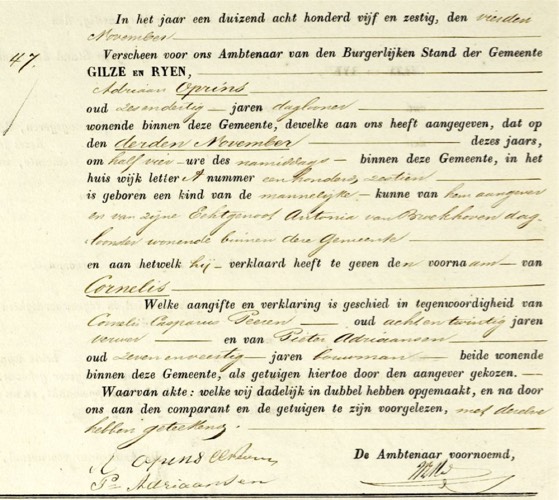 In het jaar een duizend acht honderd vijf en zestig, den vierden
November
47. Verscheen voor ons Ambtenaar van den Burgerlijken Stand der Gemeente
GILZE EN RYEN,
Adriaan Oprins
oud zesendertig jaren daglooner
wonende binnen deze Gemeente, dewelke aan ons heeft aangegeven, dat op
den derden November dezes jaars,
om half vier ure des namiddags binnen deze Gemeente, in het
huis wijk letter A nummer een honderd zestien
is geboren een kind van de mannelijke kunne van hem aangever
en van zijne Echtgenoot Antonia van Broekhoven dag
loonster wonende binnen deze Gemeente
en aan hetwelk hij verklaard heeft te geven den voornaam van
Cornelis
Welke aangifte en verklaring is geschied in tegenwoordigheid van
Cornelis Casparus Peeren oud acht en twintig jaren
verwer en van Pieter Adriaansen
oud zeven en veertig jaren bouwman beide wonende
binnen deze Gemeente, als getuigen hiertoe door den aangever gekozen.
Waarvan akte: welke wij dadelijk in dubbel hebben opgemaakt, en na door
ons aan den comparant en de getuigen te zijn voorgelezen, met dezelve
hebben geteekend.
A Oprins
De Ambtenaar voornoemd,
P Adriaansen